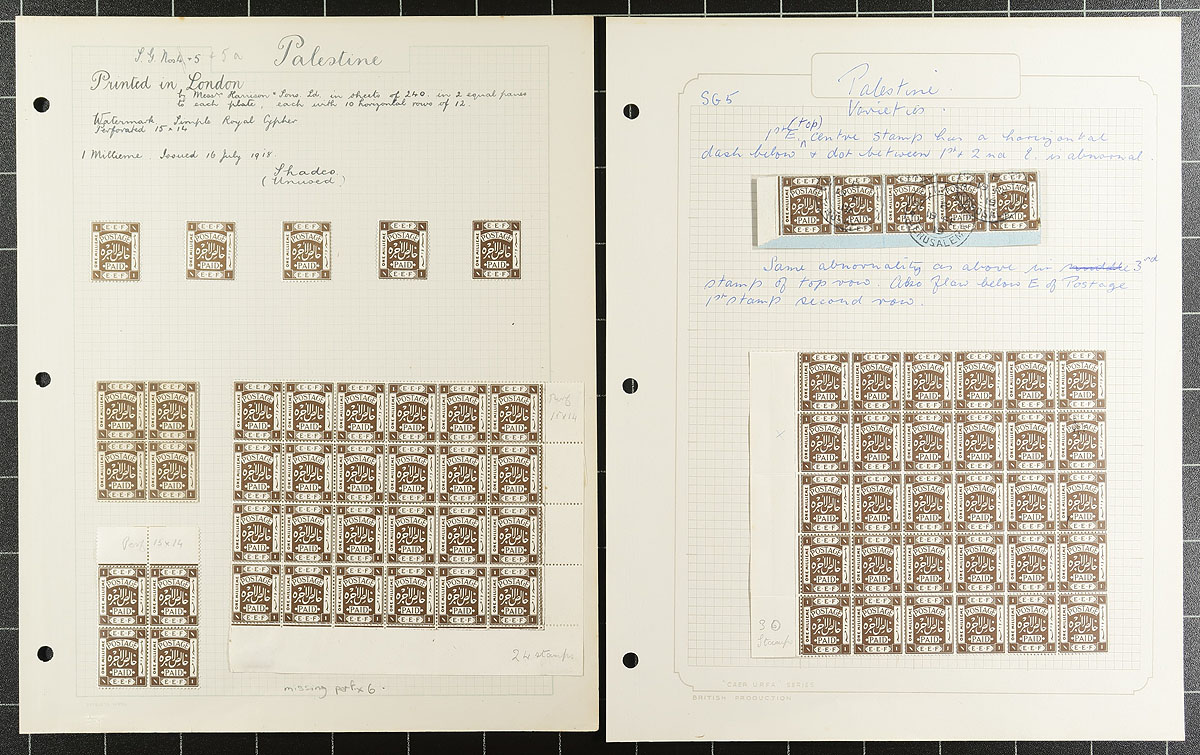 S.G. Nos 4 + 5 + 5a
Palestine
Printed in London
by Messrs Harrison & Sons. Ld. in sheets of 240. in 2 equal panes
to each plate, each with 10 horizontal rows of 12.
Watermark Simple Royal Cypher
Perforated 15 x 14
1 Millieme. Issued 16 July 1918
Shades
(Unused)
E.E.F.
POSTAGE
PAID
E.E.F
Perf
15x14
Perf 15x14
24 stamps
missing perf x 6.
SG5
Palestine.
Varieties.
1st E (top) centre stamp has a horizontal
dash below & dot between 1st + 2nd E. is abnormal.
JERUSALEM
Same abnormality as above in middle 3rd
stamp of top row. Also flaw below E of Postage
1st stamp second row.
x
30
Stamps
SERIES
BRITISH PRODUCTION